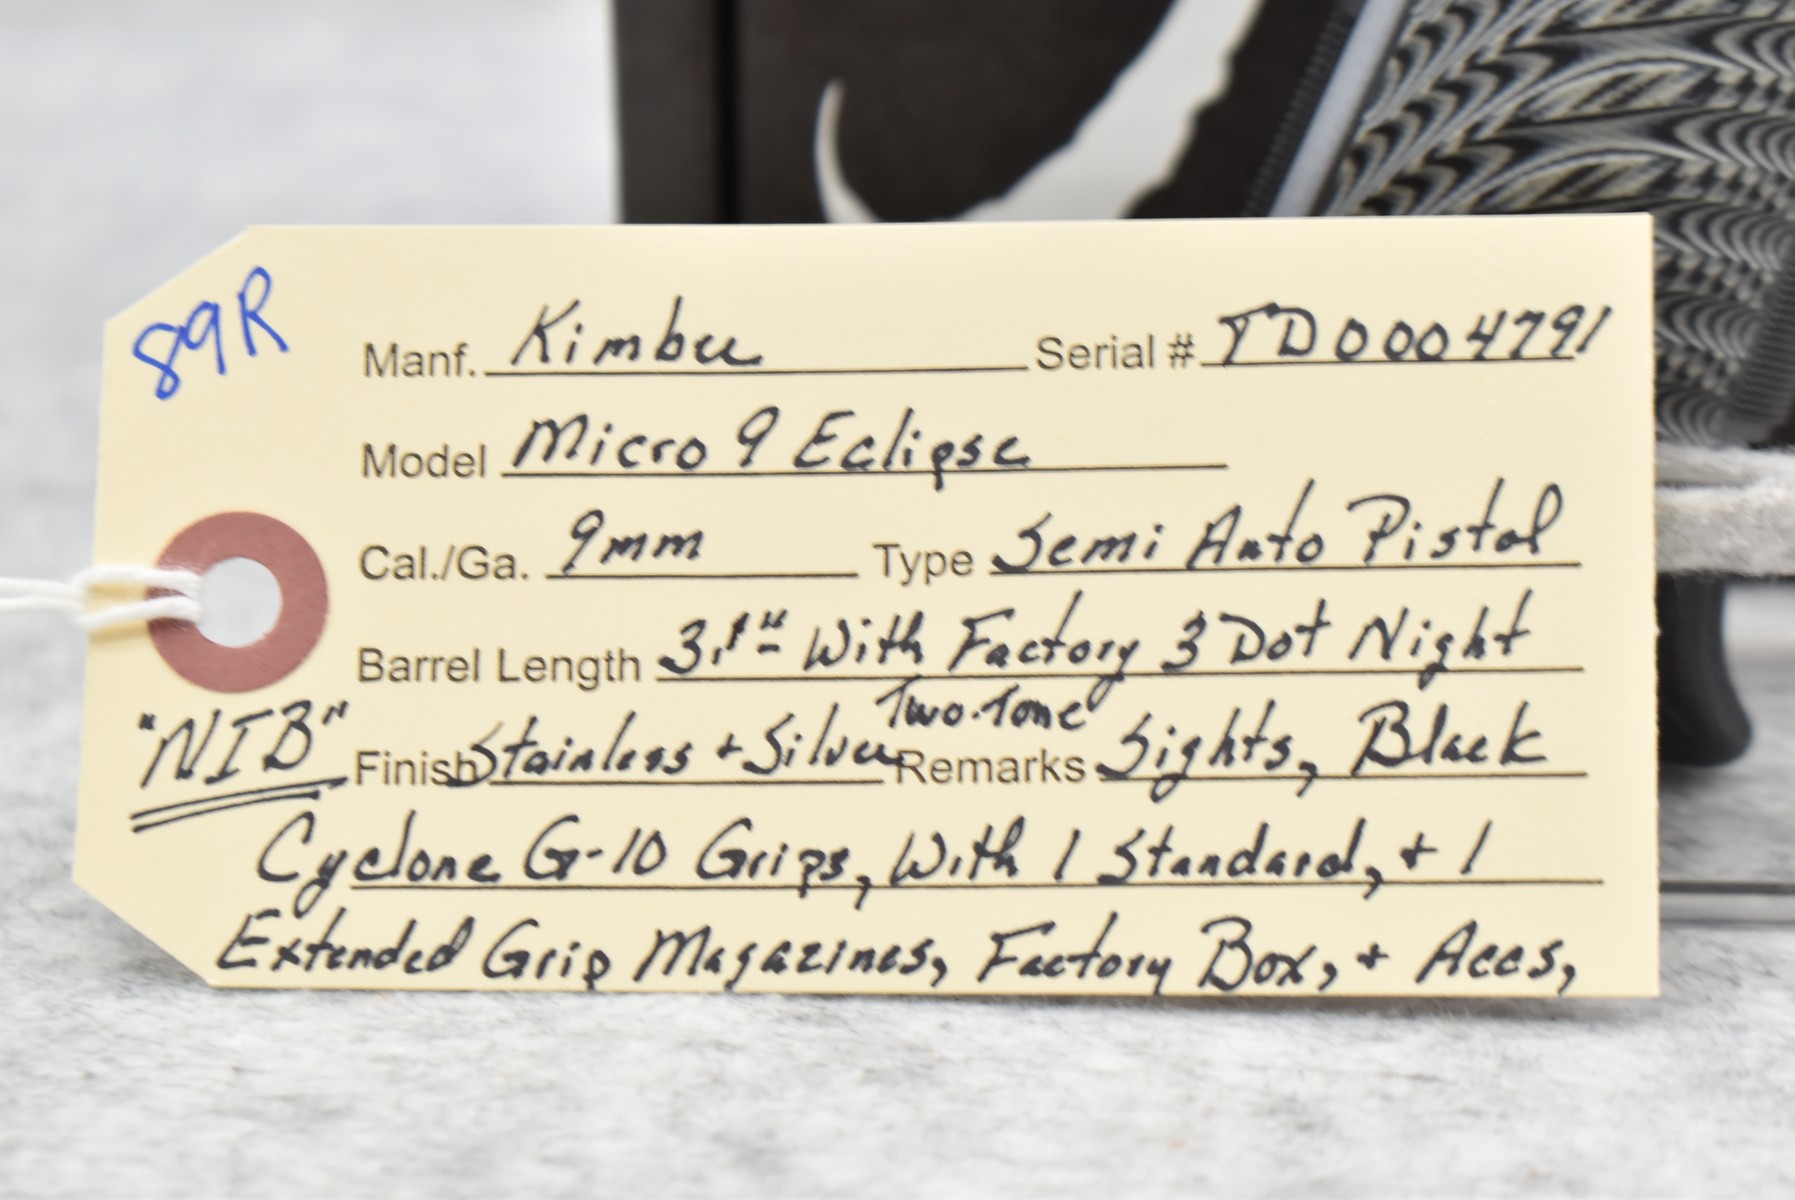 89R
Manf. Kimber Serial # TD0004791
Model Micro 9 Eclipse
Cal./Ga. 9mm Type Semi Auto Pistol
Barrel Length 3.1" With Factory 3 Dot Night
Two-Tone
"NIB" Finish Stainless + Silver Remarks Sights, Black
Cyclone G-10 Grips, With 1 Standard, + 1
Extended Grip Magazines, Factory Box, + Aces,